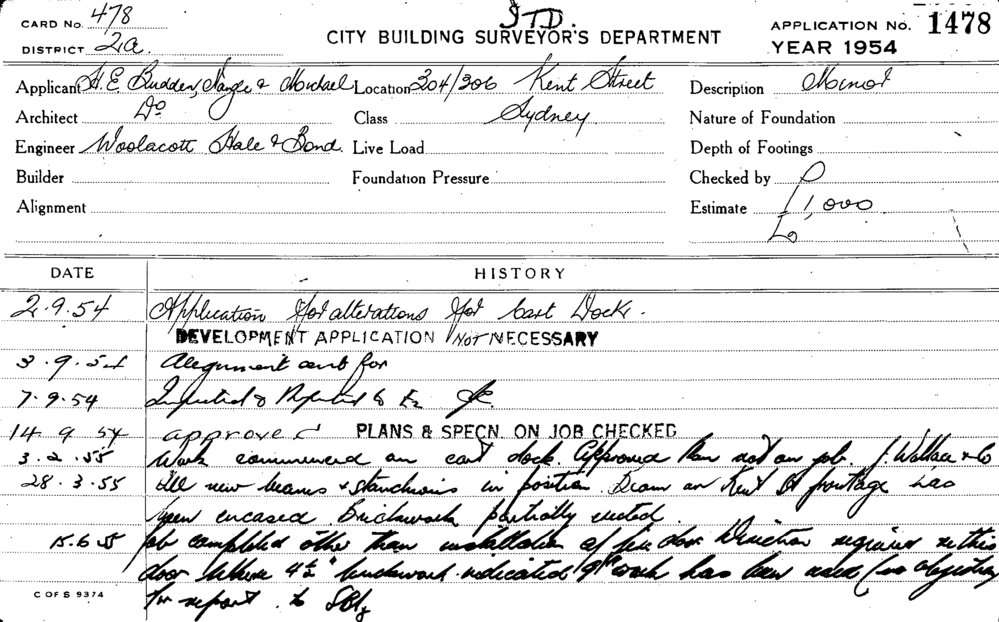 S.T.D.
CARD No. 478
CITY BUILDING SURVEYOR'S DEPARTMENT
APPLICATION No. 1478
DISTRICT 2a.
YEAR 1954
Applicant H. E. Budden, Nangle & Michael Location 304/306 Kent Street Description Minor
Architect Do Class Sydney Nature of Foundation
Engineer Woolacott Hale & Bond. Live Load Depth of Footings
Builder Foundation Pressure Checked by
Alignment Estimate £1,000
£0
DATE HISTORY
2.9.54 Application for alterations for Cart Dock.
DEVELOPMENT APPLICATION NOT NECESSARY
3.9.54 Alignment for
7.9.54 & to
14.9.54 approved PLANS & SPECN. ON JOB CHECKED
3.2.55 Work commenced on cart dock. Approved Plan not on job. J. Wallace & Co
28.3.55 All new beams & stanchions in position. Beam on Kent St frontage has
been encased. Brickwork partially erected.
15.6.55 Job completed other than installation of fire door. Direction required re this
door. Where 4½" brickwork indicated 9" work has been used (no objection)
for report to
C OF S 9374